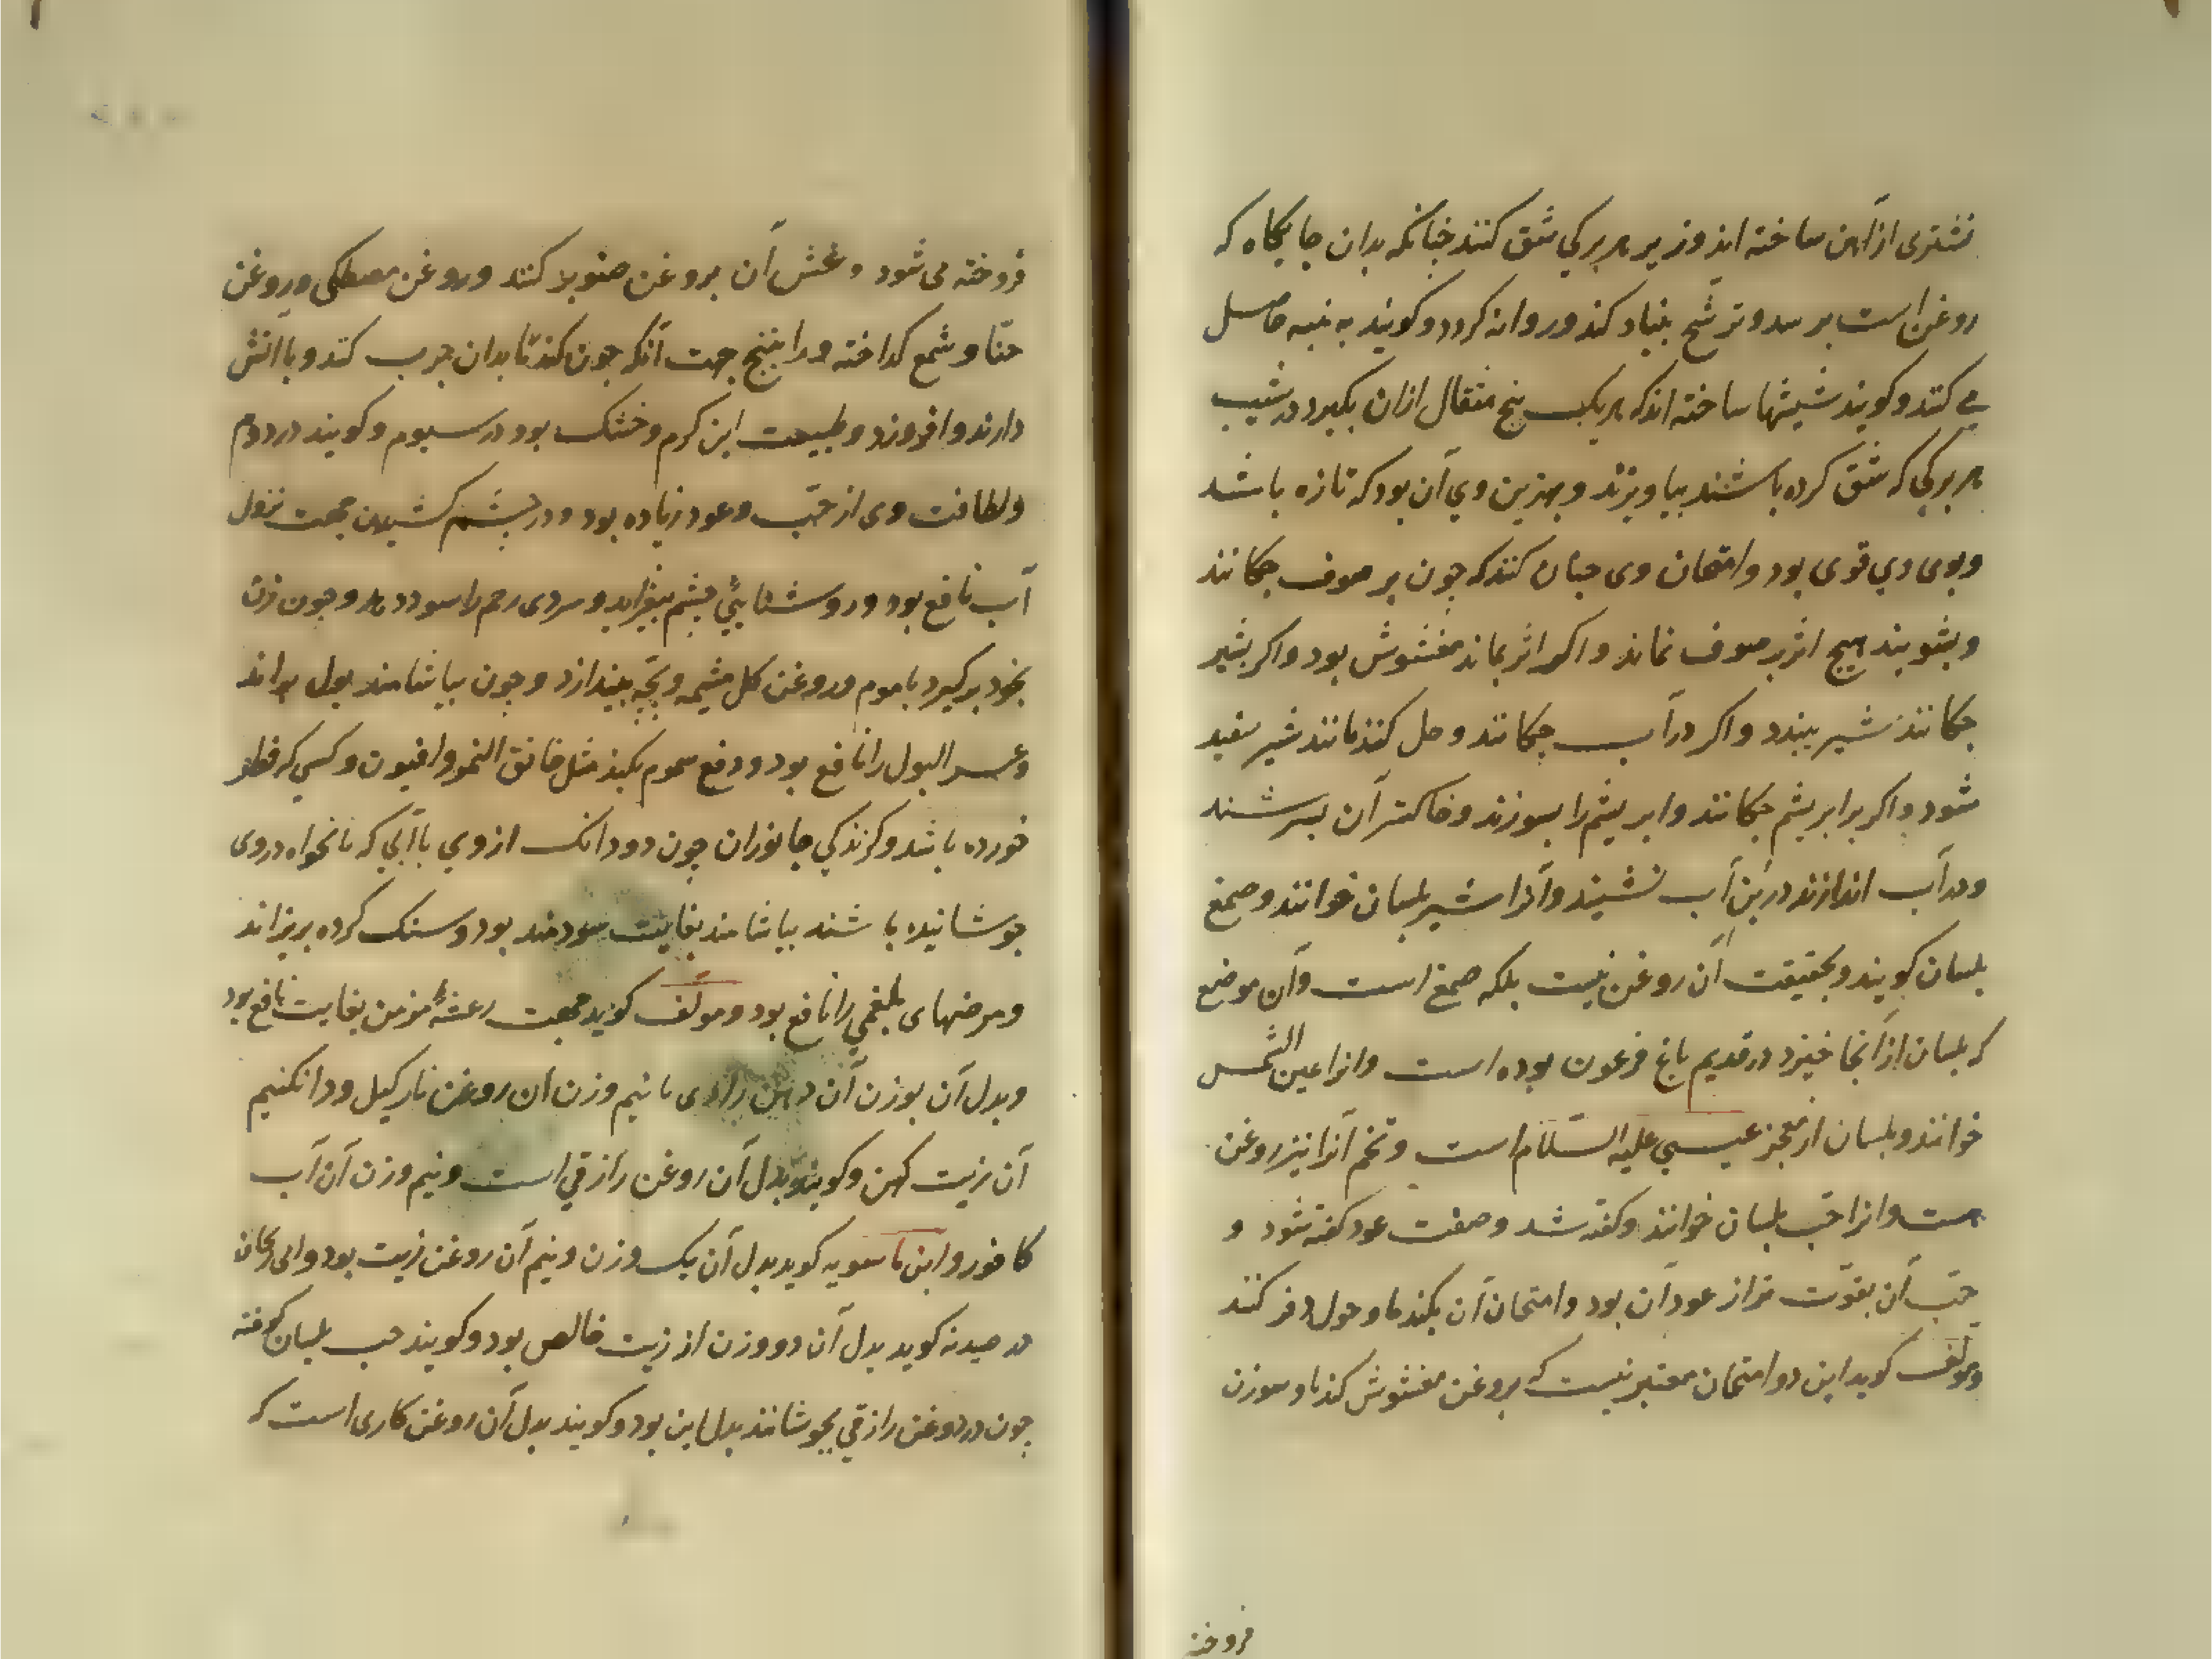 نشتری از آهن ساخته اند و زیر هر برکی شق کنند جنانکه بدان جایکاه که
روغن است برسد و ترشح بنیاد کند و روانه کردد و کویند به پنبه حاصل
می کنند و کویند شیشها ساخته اند که هر یک پنج مثقال ازان بکیرد در شیب
هر برکی که شق کرده باشند بیاویزند و بهترین وی آن بود که تازه باشد
و بوی وی قوی بود و امتحان وی جنان کنند که جون بر صوف جکانند
و بشویند هیچ اثر بر صوف نماند و اکر اثر بماند مغشوش بود و اکر بشیر
جکانند شیر ببندد و اکر در آب جکانند و حل کنند مانند شیر سفید
شود و اکر بر ابریشم جکانند و ابریشم را بسوزند و خاکستر آن بسرشند
و در آب اندازند در بن آب نشیند و آنرا شیر بلسان خوانند و صمغ
بلسان کویند و بحقیقت آن روغن نیست بلکه صمغ است و آن موضع
که بلسان از آنجا خیزد در قدیم باغ فرعون بوده است و انرا عین الشمس
خوانند و بلسان از معجز عیسی علیه السلام است و تخم آنرا نیز روغن
هست و انرا حب بلسان خوانند و کفته شد و صفت عود کفته شود و
حب آن بقوت تر از عود آن بود و امتحان آن بکندنا و حول دفر کنند
و مولف کوید این دو امتحان معتبر نیست که بروغن مغشوش کندنا و سوزن
فروخته
فروخته می شود و غش آن بروغن صنوبر کنند و روغن مصطکی و روغن
حنا و شمع کداخته و راتینج جهت آنکه جون کندنا بدان جرب کند و با آتش
دارند وافروزد و طبیعت این کرم و خشک بود در سیوم و کویند در دوم
و لطافت وی از حب و عود زیاده بود و در جشم کشیدن جهت نزول
آب نافع بود و روشنایی جشم بیفزاید و سردی رحم را سود دهد و جون زن
بخود برکیرد با موم و روغن کل مشیمه و بچه بیندازد و جون بیاشامند بول براند
و عسر البول را نافع بود و دفع سموم بکند مثل خانق النمر و افیون و کسی که فطر
خورده باشد و کزندکی جانوران جون دو دانک از وی با آبی که نانخواه در وی
جوشانیده باشند بیاشامند بغایت سودمند بود و سنک کرده بریزاند
و مرضهای بلغمی را نافع بود و مولف کوید جهت رعشهٔ مزمن بغایت نافع بود
و بدل آن بوزن آن دهن رازی با نیم وزن آن روغن نارکیل و دانکنیم
آن زیت کهن و کویند بدل آن روغن رازقی است و نیم وزن آن آب
کافور و ابن ماسویه کوید بدل آن یک وزن و نیم آن روغن زیت بود و ابی ریحان
در صیدنه کوید بدل آن دو وزن از زیت خالص بود و کویند حب بلسان کوفته
جون در روغن رازقی بجوشانند بدل این بود و کویند بدل آن روغن کاری است که